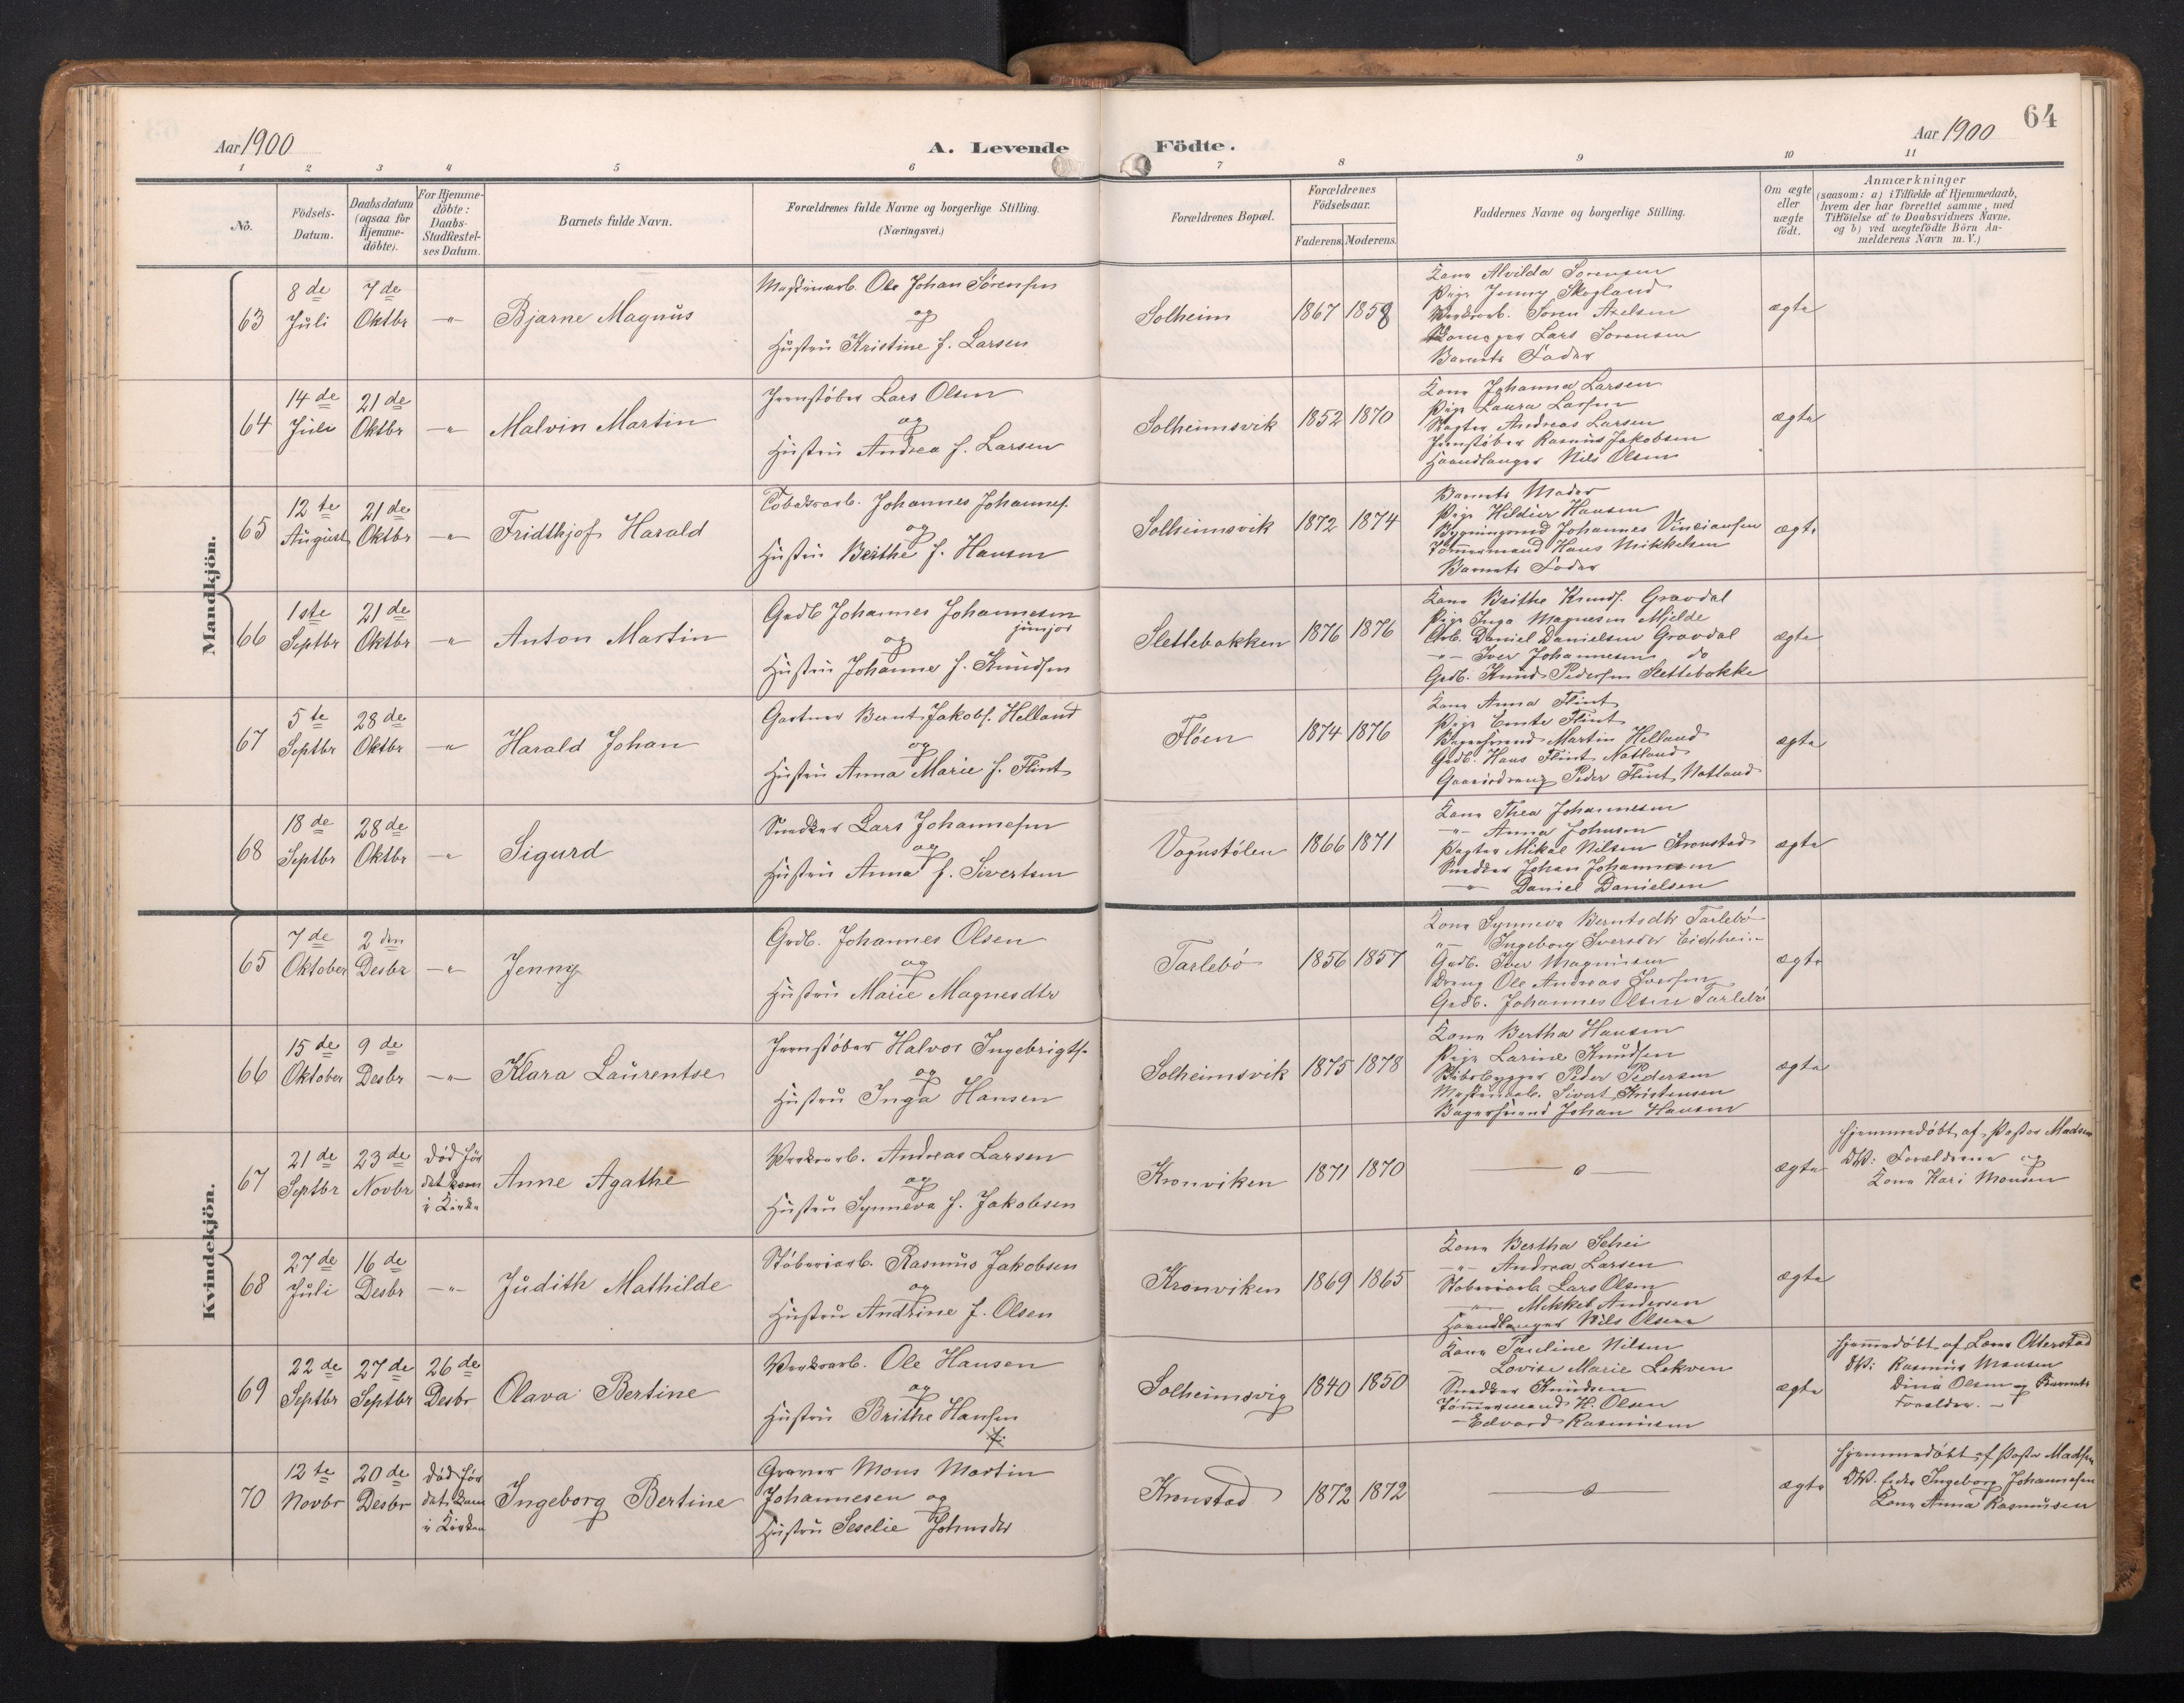 64
Aar 1900
A. Levende
Födte.
Aar 1900
1 2 3 4 5 6 7 8 9 10 11
No.
Födsels-
Datum.
Daabsdatum
(ogsaa for
Hjemme-
döbte).
For Hjemme-
döbte:
Daabs-
Stadfæstel-
ses Datum.
Barnets fulde Navn.
Forældrenes fulde Navne og borgerlige Stilling.
(Næringsvei.)
Forældrenes Bopæl.
Forældrenes
Födselsaar.
Faderens. Moderens.
Faddernes Navne og borgerlige Stilling.
Om ægte
eller
uægte
født.
Anmærkninger
(saasom: a) i Tilfælde af Hjemmedaab,
hvem der har forrettet samme, med
Tilföielse af to Daabsvidners Navne.
og b) ved uægtefödte Börn An-
melderens Navn m. V.)
Mandkjön.
63
8de
Juli
7de
Oktbr
-"-
Bjarne Magnus
Maskinarb. Ole Johan Sørensen
og
Hustru Kristine f. Larsen
Solheim
1867 1858
Kone Alvilda Sorensen
Pige Jenny Skogland
Værksarb. Soren Axelsen
Lars Sorensen
Barnets Fader
ægte
64
14de
Juli
21de
Oktbr
-"-
Malvin Martin
Jernstøber Lars Olsen
og
Hustru Andrea f. Larsen
Solheimsvik
1852 1870
Kone Johanna Larsen
Pige Laura Larsen
Andreas Larsen
Jernstøber Rasmus Jakobsen
Haandlanger Nils Olsen
ægte
65
12te
August
21de
Oktbr
-"-
Fridthjof Harald
Tobaksarb. Johannes Johannes.
og
Hustru Berthe f. Hansen
Solheimsvik
1872 1874
Barnets Moder
Pige Hansen
Johannes
Tømmermand Hans Mikkelsen
Barnets Fader
ægte
66
1ste
Septbr
21de
Oktbr
-"-
Anton Martin
Grdb Johannes Johannesen
junior
og
Hustru Johanne f. Knudsen
Slettebakken
1876 1876
Kone Brithe Knuds. Gravdal
Pige Inga Magnesen Mjelde
Arb. Daniel Danielsen Gravdal
-"- Iver Johannesen do
Grdb. Knud Pedersen Slettebakke
ægte
67
5te
Septbr
28de
Oktbr
-"-
Harald Johan
Gartner Bernt Jakobs. Helland
og
Hustru Anna Marie f. Flint
Fløen
1874 1876
Kone Anna Flint
Pige Flint
Bagersvend Martin Helland
Grdb. Hans Flint Natland
Peder Flint Natland
ægte
68
18de
Septbr
28de
Oktbr
-"-
Sigurd
Snedker Lars Johannesen
og
Hustru Anna f. Sivertsen
Vognstølen
1866 1871
Kone Thea Johannesen
-"- Anna Johnsen
Pagter Mikal Nilsen Kronstad
Snedker Johan Johannesen
-"- Daniel Danielsen
ægte
Kvindekjön.
65
7de
Oktober
2den
Desbr
-"-
Jenny
Grdb. Johannes Olsen
og
Hustru Marie Magnesdtr
Tarlebø
1856 1857
Kone Synneva Berntsdtr Tarlebø
"- Ingeborg Iversdtr
Grdb. Iver Magnusen
Dreng Ole Andreas Iversen
Grdb. Johannes Olsen Tarlebø
ægte
66
15de
Oktober
9de
Desbr
-"-
Klara Laurentse
Jernstøber Halvor Ingebrigts.
og
Hustru Inga Hansen
Solheimsvik
1875 1878
Kone Bertha Hansen
Pige Larine Knudsen
Skibsbygger Peder Pedersen
Maskinarb. Sivert Kristensen
Bagersvend Johan Hansen
ægte
67
21de
Septbr
23de
Novbr
død før
det kom
i Kirke
Anne Agathe
Værksarb. Andreas Larsen
og
Hustru Synneva f. Jakobsen
Kronviken
1871 1870
— o —
ægte
Hjemmedøbt af Pastor Madsen
DW: Forældrene og
Kone Kari Monsen
68
27de
Juli
16de
Desbr
-"-
Judith Mathilde
Støberiarb. Rasmus Jakobsen
og
Hustru Andrine f. Olsen
Kronviken
1869 1865
Kone Bertha Schei
-"- Andrea Larsen
Støberiarb Lars Olsen
-"- Mikkel Andersen
Haandlanger Nils Olsen
ægte
69
22de
Septbr
27de
Septbr
26de
Desbr
Olava Bertine
Værksarb. Ole Hansen
og
Hustru Brithe Hansen
f.
Solheimsvig
1840 1850
Kone Pauline Nilsen
- Lovise Marie Lekven
Snedker Knudsen
Tømmermand H. Olsen
- Edvard Rasmusen
ægte
Hjemmedøbt af Lena Otterstad
DW: Rasmus Monsen
Dina Olsen og Barnets
Forældre. -
70
12te
Novbr
20de
Desbr
død før
det kom
i Kirken
Ingeborg Bertine
Graver Mons Martin
Johannesen og
Hustru Seselie Johnsdtr
Kronstad
1872 1872
— o —
ægte
Hjemmedøbt af Pastor Madsen
DW. Enke Ingeborg Johannesen
Kone Anna Rasmusen